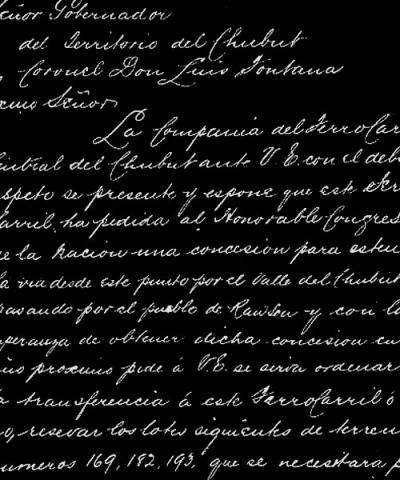 eñor Gobernador
del Territorio del Chubut
Coronel Don Luis Fontana
cmo Señor
La Compania del FerroCarr
entral del Chubut ante V. E. con el deb
speto se presente y espone que este Ferr
arril, ha pedida al Honorable Congres
e la nacion una concesion para esten
a via desde este punto por el Valle del Chubut
pasando por el pueblo de Rawson y con la
speranza de obtener dicha concesion en
ño proximo pide á V. E. se sirva ordenar
a transferencia á este FerroCarril ó
o, reservar los lotes siguientes de terren
umeros 169, 182, 193, que se necesitara p